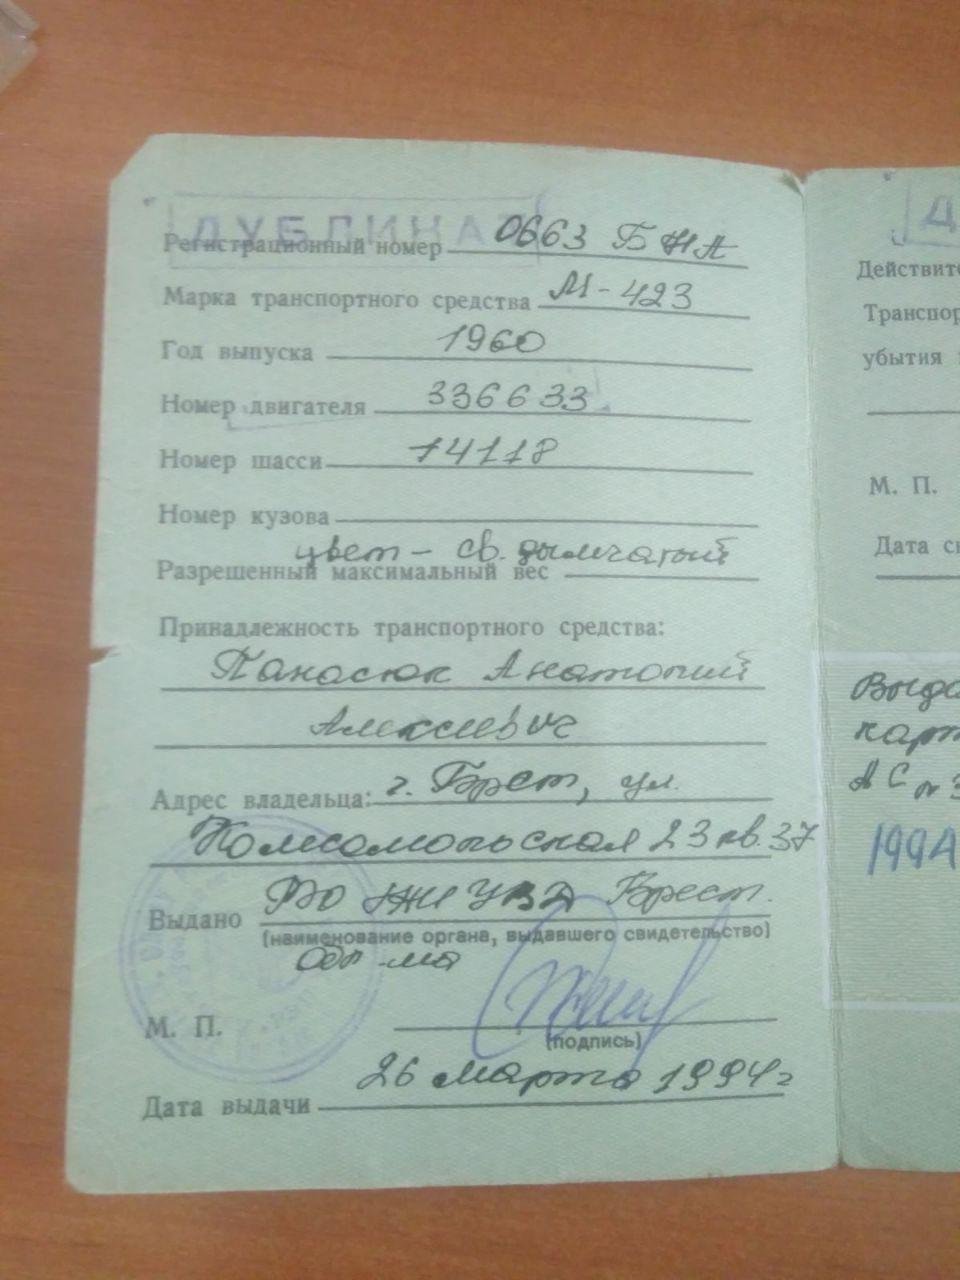 ДУБЛИКАТ
Регистрационный номер 0663 БНА
Марка транспортного средства М-423
Год выпуска 1960
Номер двигателя 336633
Номер шасси 14118
Номер кузова
цвет - св. дымчатый
Разрешенный максимальный вес
Принадлежность транспортного средства:
Панасюк Анатолий
Алексеевич
Адрес владельца: г. Брест, ул.
Комсомольская 23 кв. 37
Выдано УВД Брест.
(наименование органа, выдавшего свидетельство)
М. П.
(подпись)
Дата выдачи 26 марта 1994г
Д
Действите
Транспор
убытия
М. П.
Дата с
Выда
карт
АС №3
1994